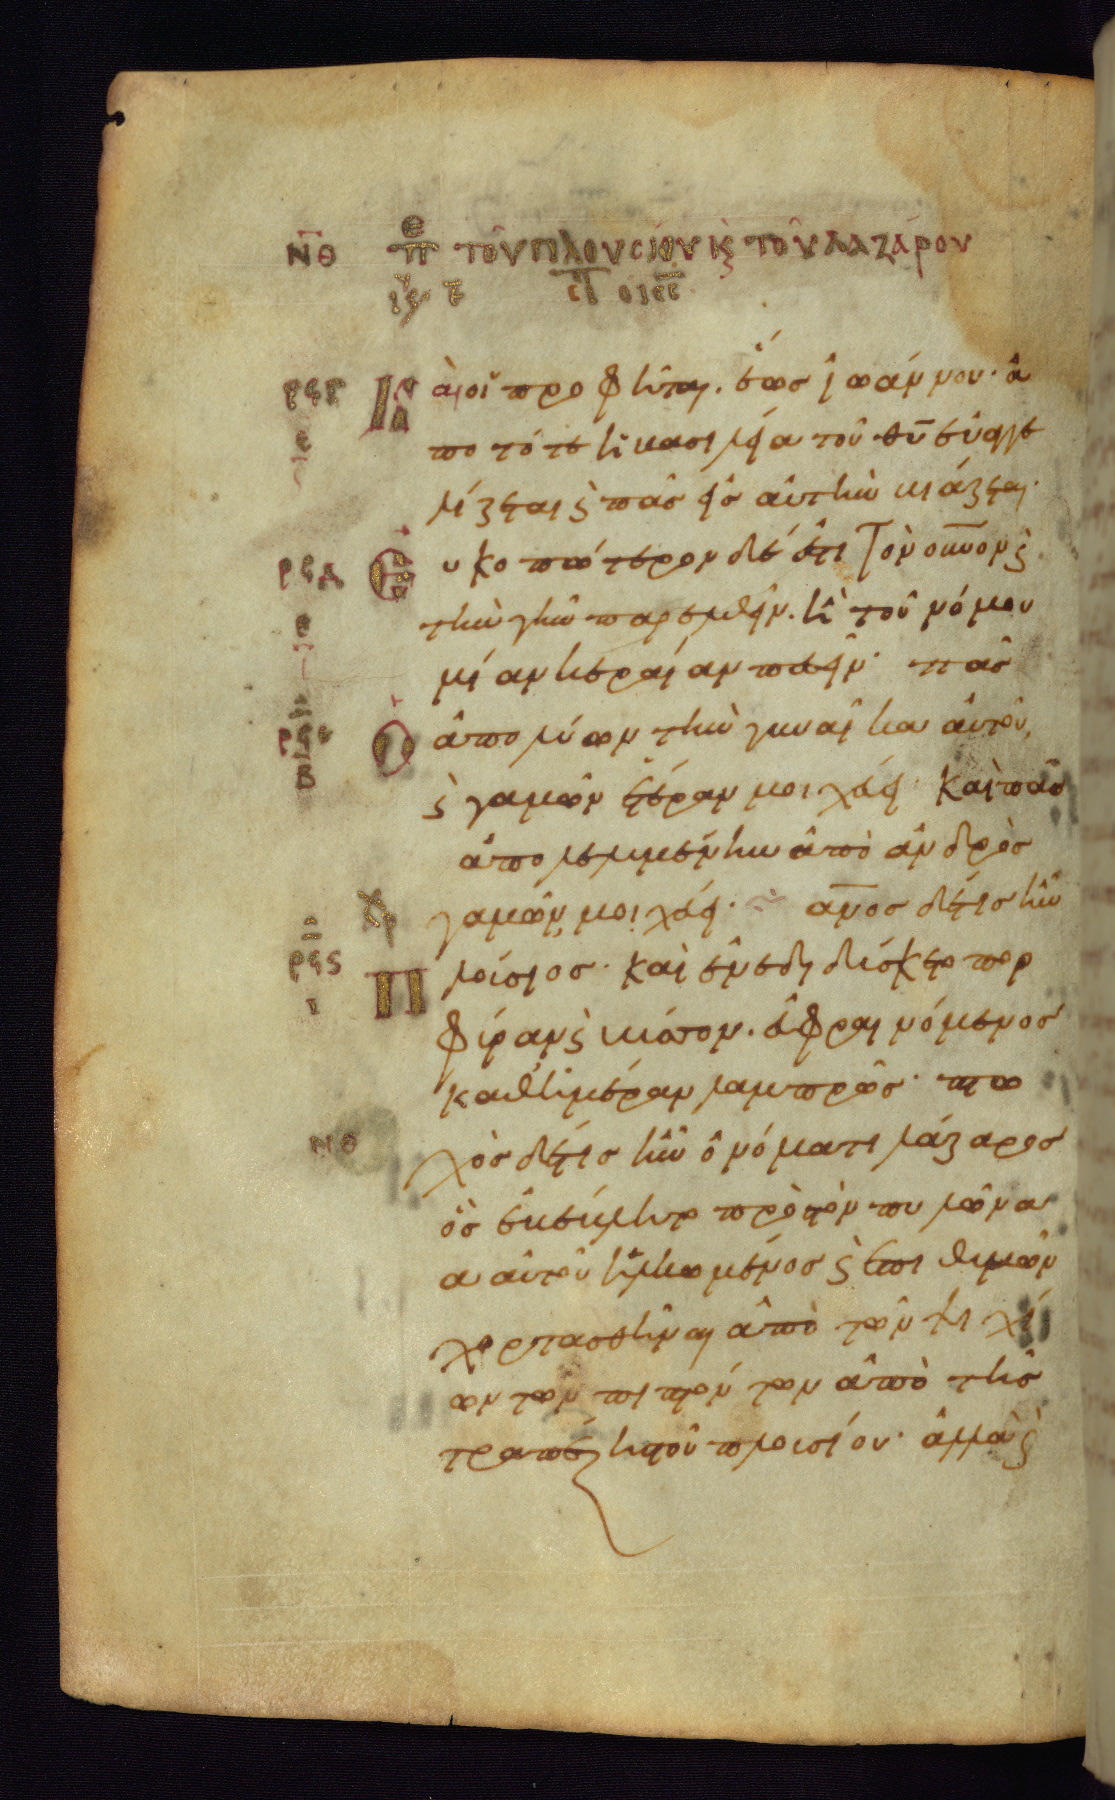 ΝΘ τοῦ πλουσίου κς τοῦ λαζάρου
ρϟγ Κὰι οἱ προφῆται. ἕως ἰωάννου· ἀ
πο τότε ἡ βασιλεία τοῦ θυ ἐυαγγε
λίζεται ϛ πᾶσ εἰσ ἀυτὴν βιάζεται·
ρϟδ Ευκοπώτερον δέ ἐστι τὸν ουνον ϛ
τὴν γῆν παρελθεῖν. ἢ τοῦ νόμου
μίαν κεραίαν πεσεῖν· πᾶσ
ρϟε Ὁ ἀπολύων τὴν γυναῖκα ἀυτοῦ,
ϛ γαμῶν ἑτέραν μοιχάει· Καὶ πᾶσ
ἀπολελυμένην ἀπὸ ἀνδρὸσ
γαμῶν, μοιχάει· ανοσ δέ τισ ἦν
ρϟϛ Πλοίσιοσ· καὶ ἐνεδιδίσκετο πορ
φίραν ϛ βύσον. ἐυφραινόμενοσ
καθημέραν λαμπρῶσ· πτω
ΝΘ χὸσ δέ τισ ἦν ὀνόματι λάζαροσ
ὃσ ἐβέβλητο πρὸσ τὸν πυλῶνα
α αὐτοῦ ἡλκωμένοσ ϛ ἐπιθυμῶν
χορτασθῆναι ἀπὸ τῶν ψιχί
ων τῶν πιπτόντων ἀπὸ τῆσ
τραπέζησ τοῦ πλοισίου· ἀλλὰ ϛ